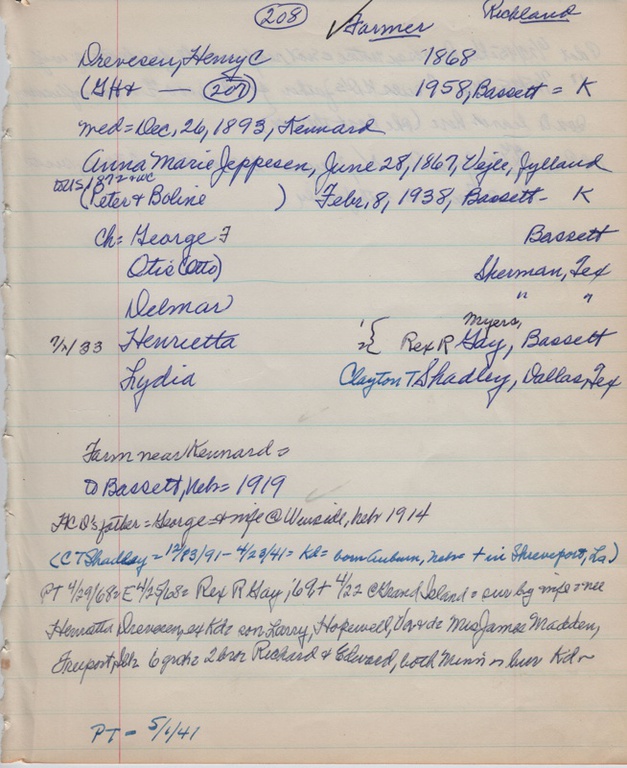 208 ✓ Farmer Richland
Drevesen, Henry C 1868
(GH+ — 207) 1958, Bassett = K
med = Dec, 26, 1893, Kennard
Anna Marie Jeppesen, June 28, 1867, Vejle, Jylland
to US 1872
(Peter + Boline ) Febr, 8, 1938, Bassett - K
Ch: George Bassett
Otis (Otto) Sherman, Tex
Delmar " "
Myers,
7/2/33 Henrietta 1 2 { Rex R Gay, Bassett
Lydia Clayton T Shadley, Dallas, Tex
Farm near Kennard =
to Bassett, Nebr = 1919
HCD's father = George = + wife @ Winside, Nebr 1914
(CT Shadley = 12/23/91 - 4/23/41 = Kd = born Auburn, Nebr = + in Shreveport, La)
PT 4/29/68 = E 4/25/68 = Rex R Gay, 69 + 4/22 @ Grand Island = sur by wife = nee
Henrietta Drevesen, ex Kd = son Larry, Hopewell, Va + d = Mrs James Madden,
Freeport, Ill = 6 grch = 2 bros Richard + Edward, both Minn = bur Kd -
PT - 5/1/41